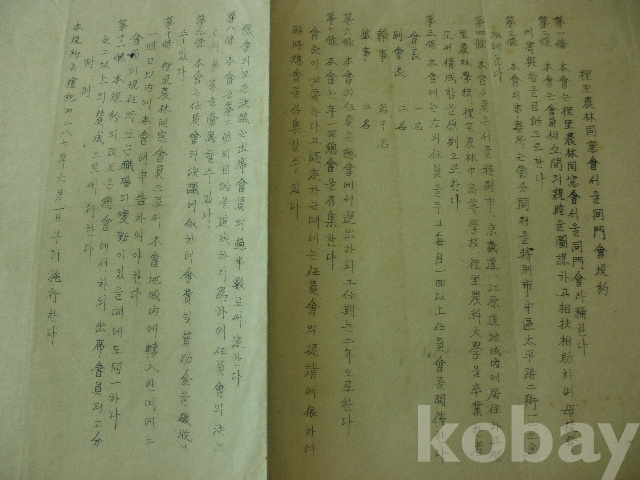 裡里農林同窓會서울同門會規約
第一條 本會는裡里農林同窓會서울同門會라稱한다
第二條 本會는會員相互間의親睦을圖謀하고相扶相助하며母校發
에寄與함을目的으로한다
第三條 本會의事務所는當分間서울特別市中區太平路二街一
에둔다
第四條 本會會員은서울特別市 京畿道 江原道地域內에居住하고
里農林學校 裡里農林中高等學校 裡里農科大學을卒業한者
로써構成함을原則으로한다
第五條 本會에는左의任員을두고每月一回以上任員會를開催한다
會長 一名
副會長 二名
幹事 若干名
監事 二名
第六條 本會의任員은總會에서選出하되그任期는一年으로한다
第七條 本會는年一回總會를召集한다
會長이必要하다고認定하는때에는任員會의提請에依하여
臨時總會를召集할수있다
總會의모든決議는出席會員의過半數로써定한다
第八條 本會는第二條의目的을達成하기爲하여任員會의決議
로써事業을할수있다
第九條 本會는任員會의決議에依하여會費및贊助金을徵收할
수있다
第十條 裡里農林同窓會員으로써本會地域內에轉入한때에는
一個月以內에本會에申告하여야한다
會員의現住所또는職場의變動이있을때에도同一하다
第十一條 本規約의改正은總會에서하되出席會員의三分
之二以上의贊成으로써行한다
附則
本規約은檀紀四二八七年六月一日부터施行한다
kobay